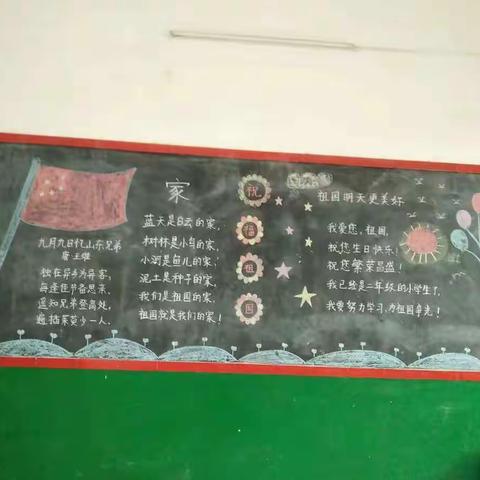 九月九日忆山东兄弟
唐 王维
独在异乡为异客,
每逢佳节备思亲,
遥知兄弟登高处,
遍插茱萸少一人.
家
蓝天是白云的家,
树林是小鸟的家,
小河是鱼儿的家,
泥土是种子的家,
我们是祖国的家,
祖国就是我们的家!
祝
福
祖
国
祖国明天更美好
我爱您,祖国,
祝您生日快乐!
祝您繁荣昌盛!
我已经是二年级的小学生了,
我要努力学习,为祖国争光!